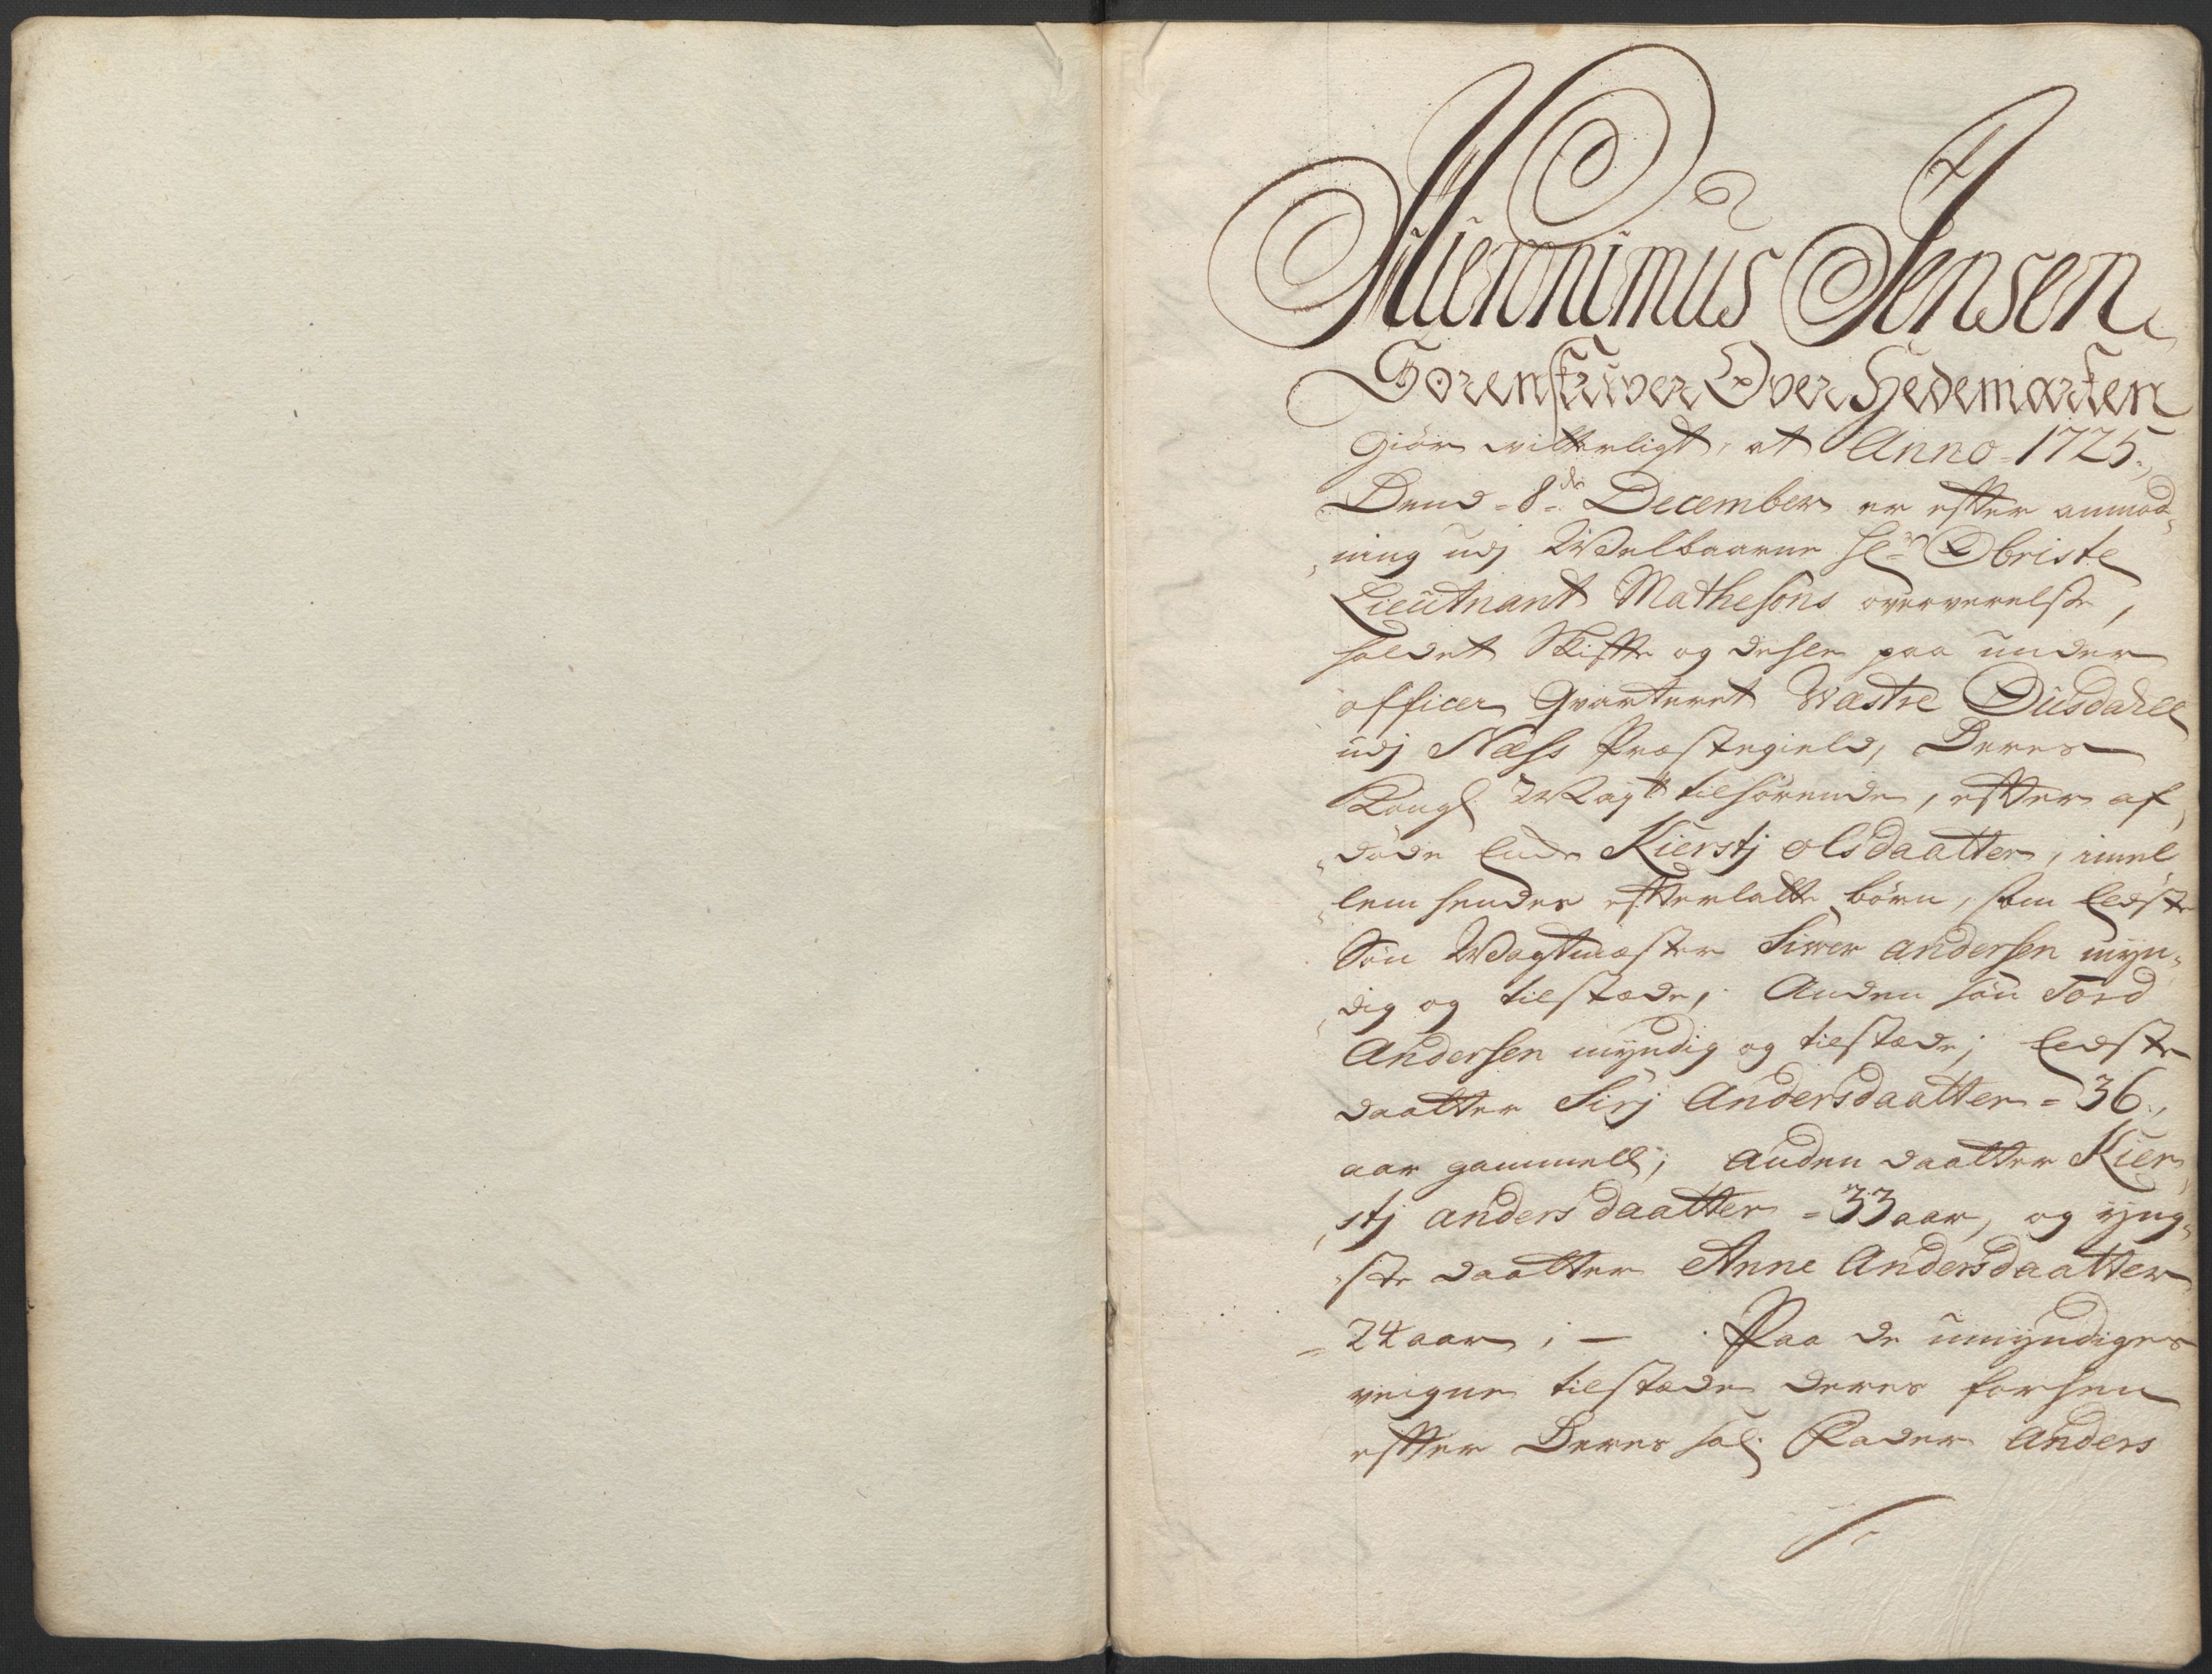 Hieronimus Jensen
Sorenskriver Over Hedemarken
Giör vitterligt, at Anno 1725.,
Dend 8de December er effter anmod-
ning udj Welbaarne Hr Obriste
Lieutnant Mathesons overværelse,
holdet Skiffte og dehle paa under
officer Qvarteret Wæstre Dusdahll
udj Næss Præstegield, Deres
Kongl Mayts tilhörende, effter af-
döde Enke Kierstj olsdaatter, imel
lem hendes effterlatte börn, som Eldste
Sön Wagtmæster Siver andersen myn-
dig og tilstæde, Anden sön Tord
Andersen myndig og tilstæde; Eldste
daatter Sirj Andersdaatter = 36.,
aar gammell; anden daatter Kier-
stj andersdaatter = 33 aar, og yng-
ste daatter Anne Andersdaatter
= 24 aar; — Paa de umyndiges
veigne tilstæde deres forhen
effter Deres sal. Fader Anders